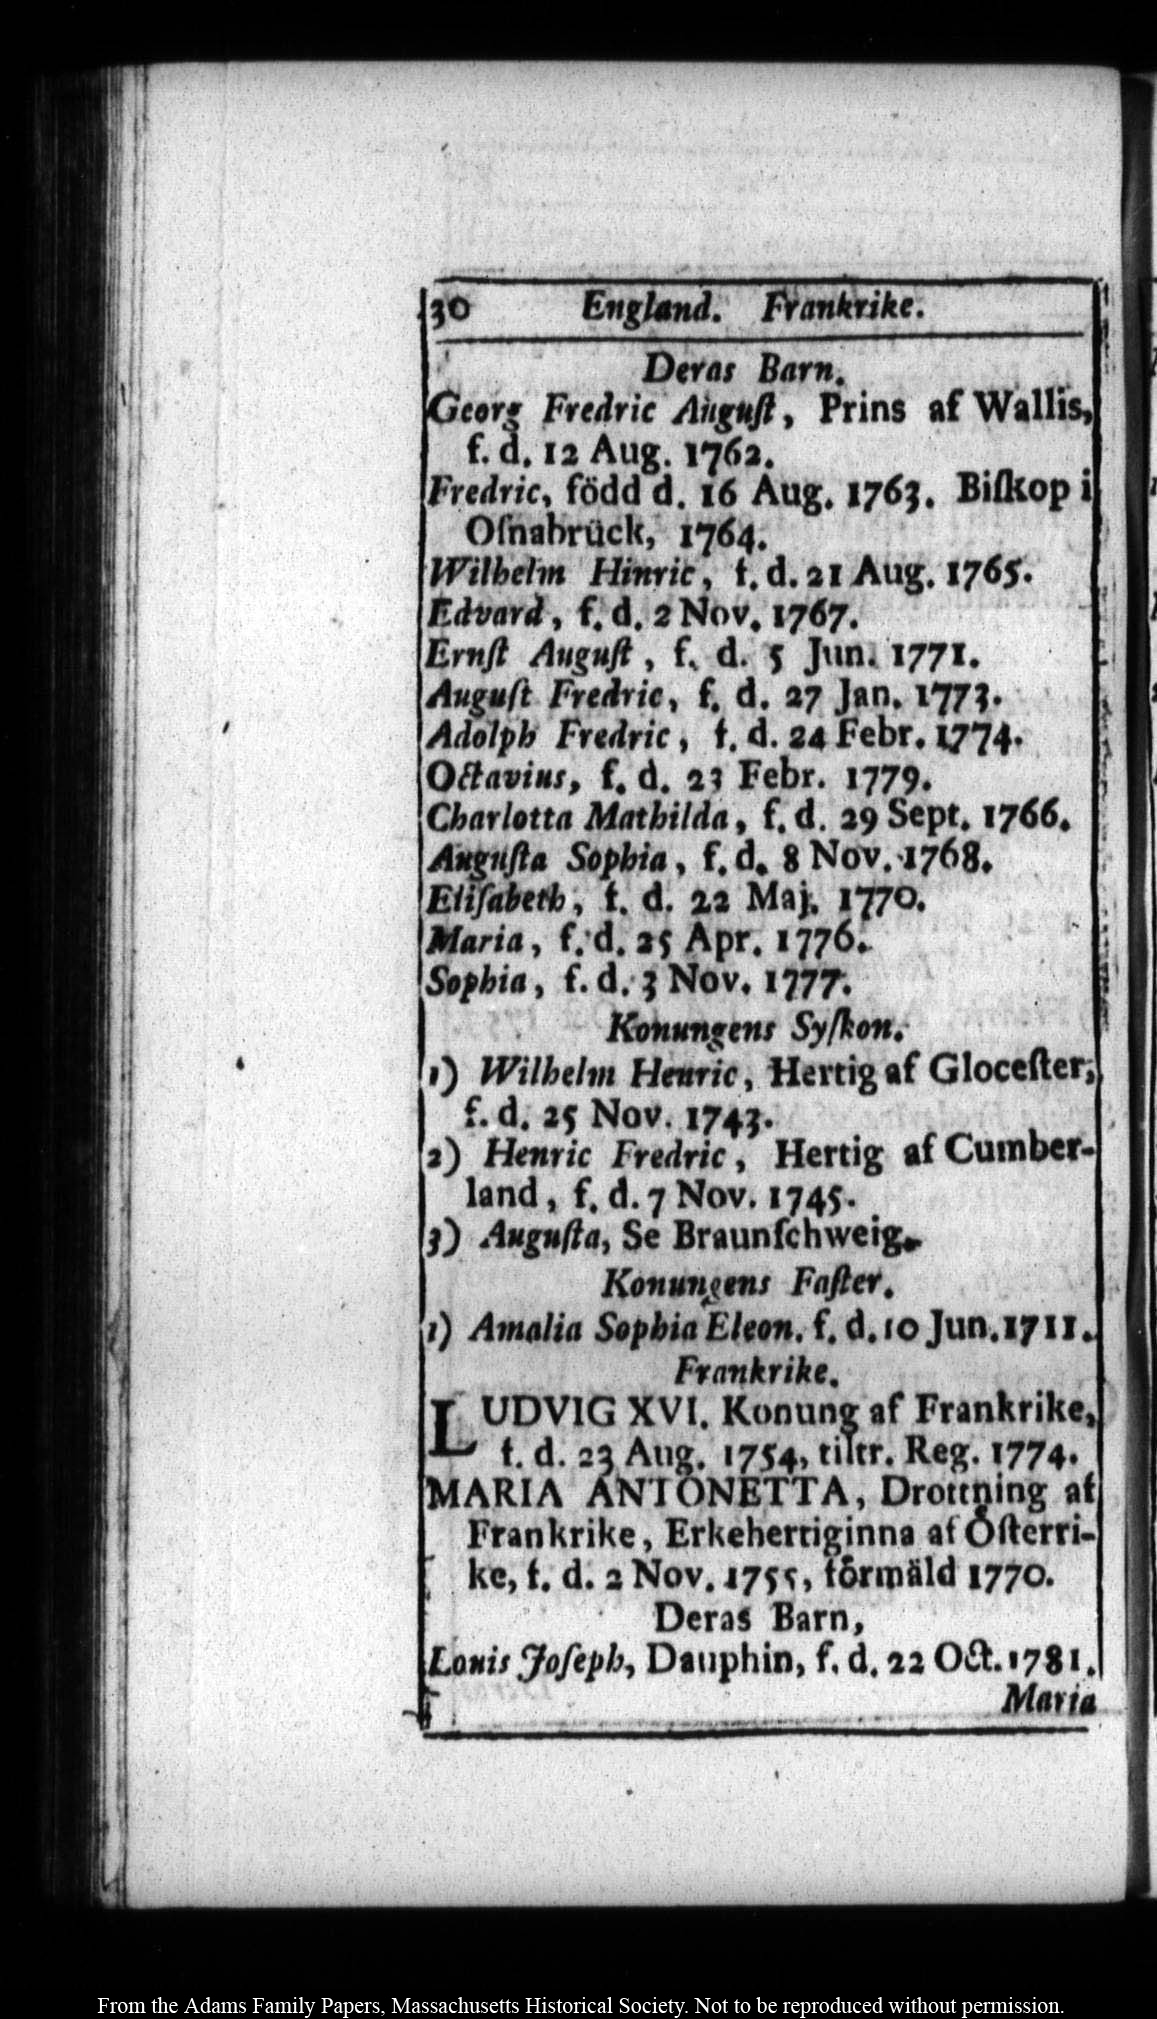 30 England. Frankrike.
Deras Barn.
Georg Fredric Auguſt, Prins af Wallis,
f. d. 12 Aug. 1762.
Fredric, född d. 16 Aug. 1763. Biſkop i
Oſnabrück, 1764.
Wilhelm Hinric, f. d. 21 Aug. 1765.
Edvard, f. d. 2 Nov. 1767.
Ernſt Auguſt, f. d. 5 Jun. 1771.
Auguſt Fredric, f. d. 27 Jan. 1773.
Adolph Fredric, f. d. 24 Febr. 1774.
Octavius, f. d. 23 Febr. 1779.
Charlotta Mathilda, f. d. 29 Sept. 1766.
Auguſta Sophia, f. d. 8 Nov. 1768.
Eliſabeth, f. d. 22 Maj. 1770.
Maria, f. d. 25 Apr. 1776.
Sophia, f. d. 3 Nov. 1777.
Konungens Syſkon.
1) Wilhelm Henric, Hertig af Gloceſter,
f. d. 25 Nov. 1743.
2) Henric Fredric, Hertig af Cumber-
land, f. d. 7 Nov. 1745.
3) Auguſta, Se Braunſchweig.
Konungens Faſter.
1) Amalia Sophia Eleon. f. d. 10 Jun. 1711.
Frankrike.
LUDVIG XVI. Konung af Frankrike,
f. d. 23 Aug. 1754, tiltr. Reg. 1774.
MARIA ANTONETTA, Drottning af
Frankrike, Erkehertiginna af Öſterri-
ke, f. d. 2 Nov. 1755, förmäld 1770.
Deras Barn,
Louis Joſeph, Dauphin, f. d. 22 Oct. 1781.
Maria
From the Adams Family Papers, Massachusetts Historical Society. Not to be reproduced without permission.